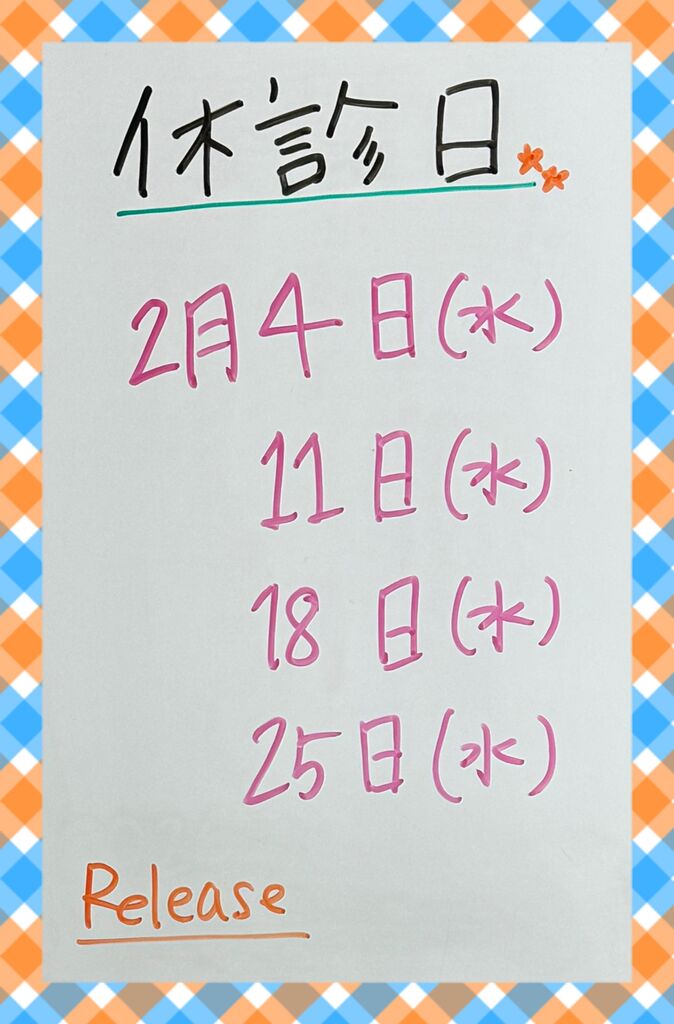 休診日
2月4日(水)
11日(水)
18日(水)
25日(水)
Release